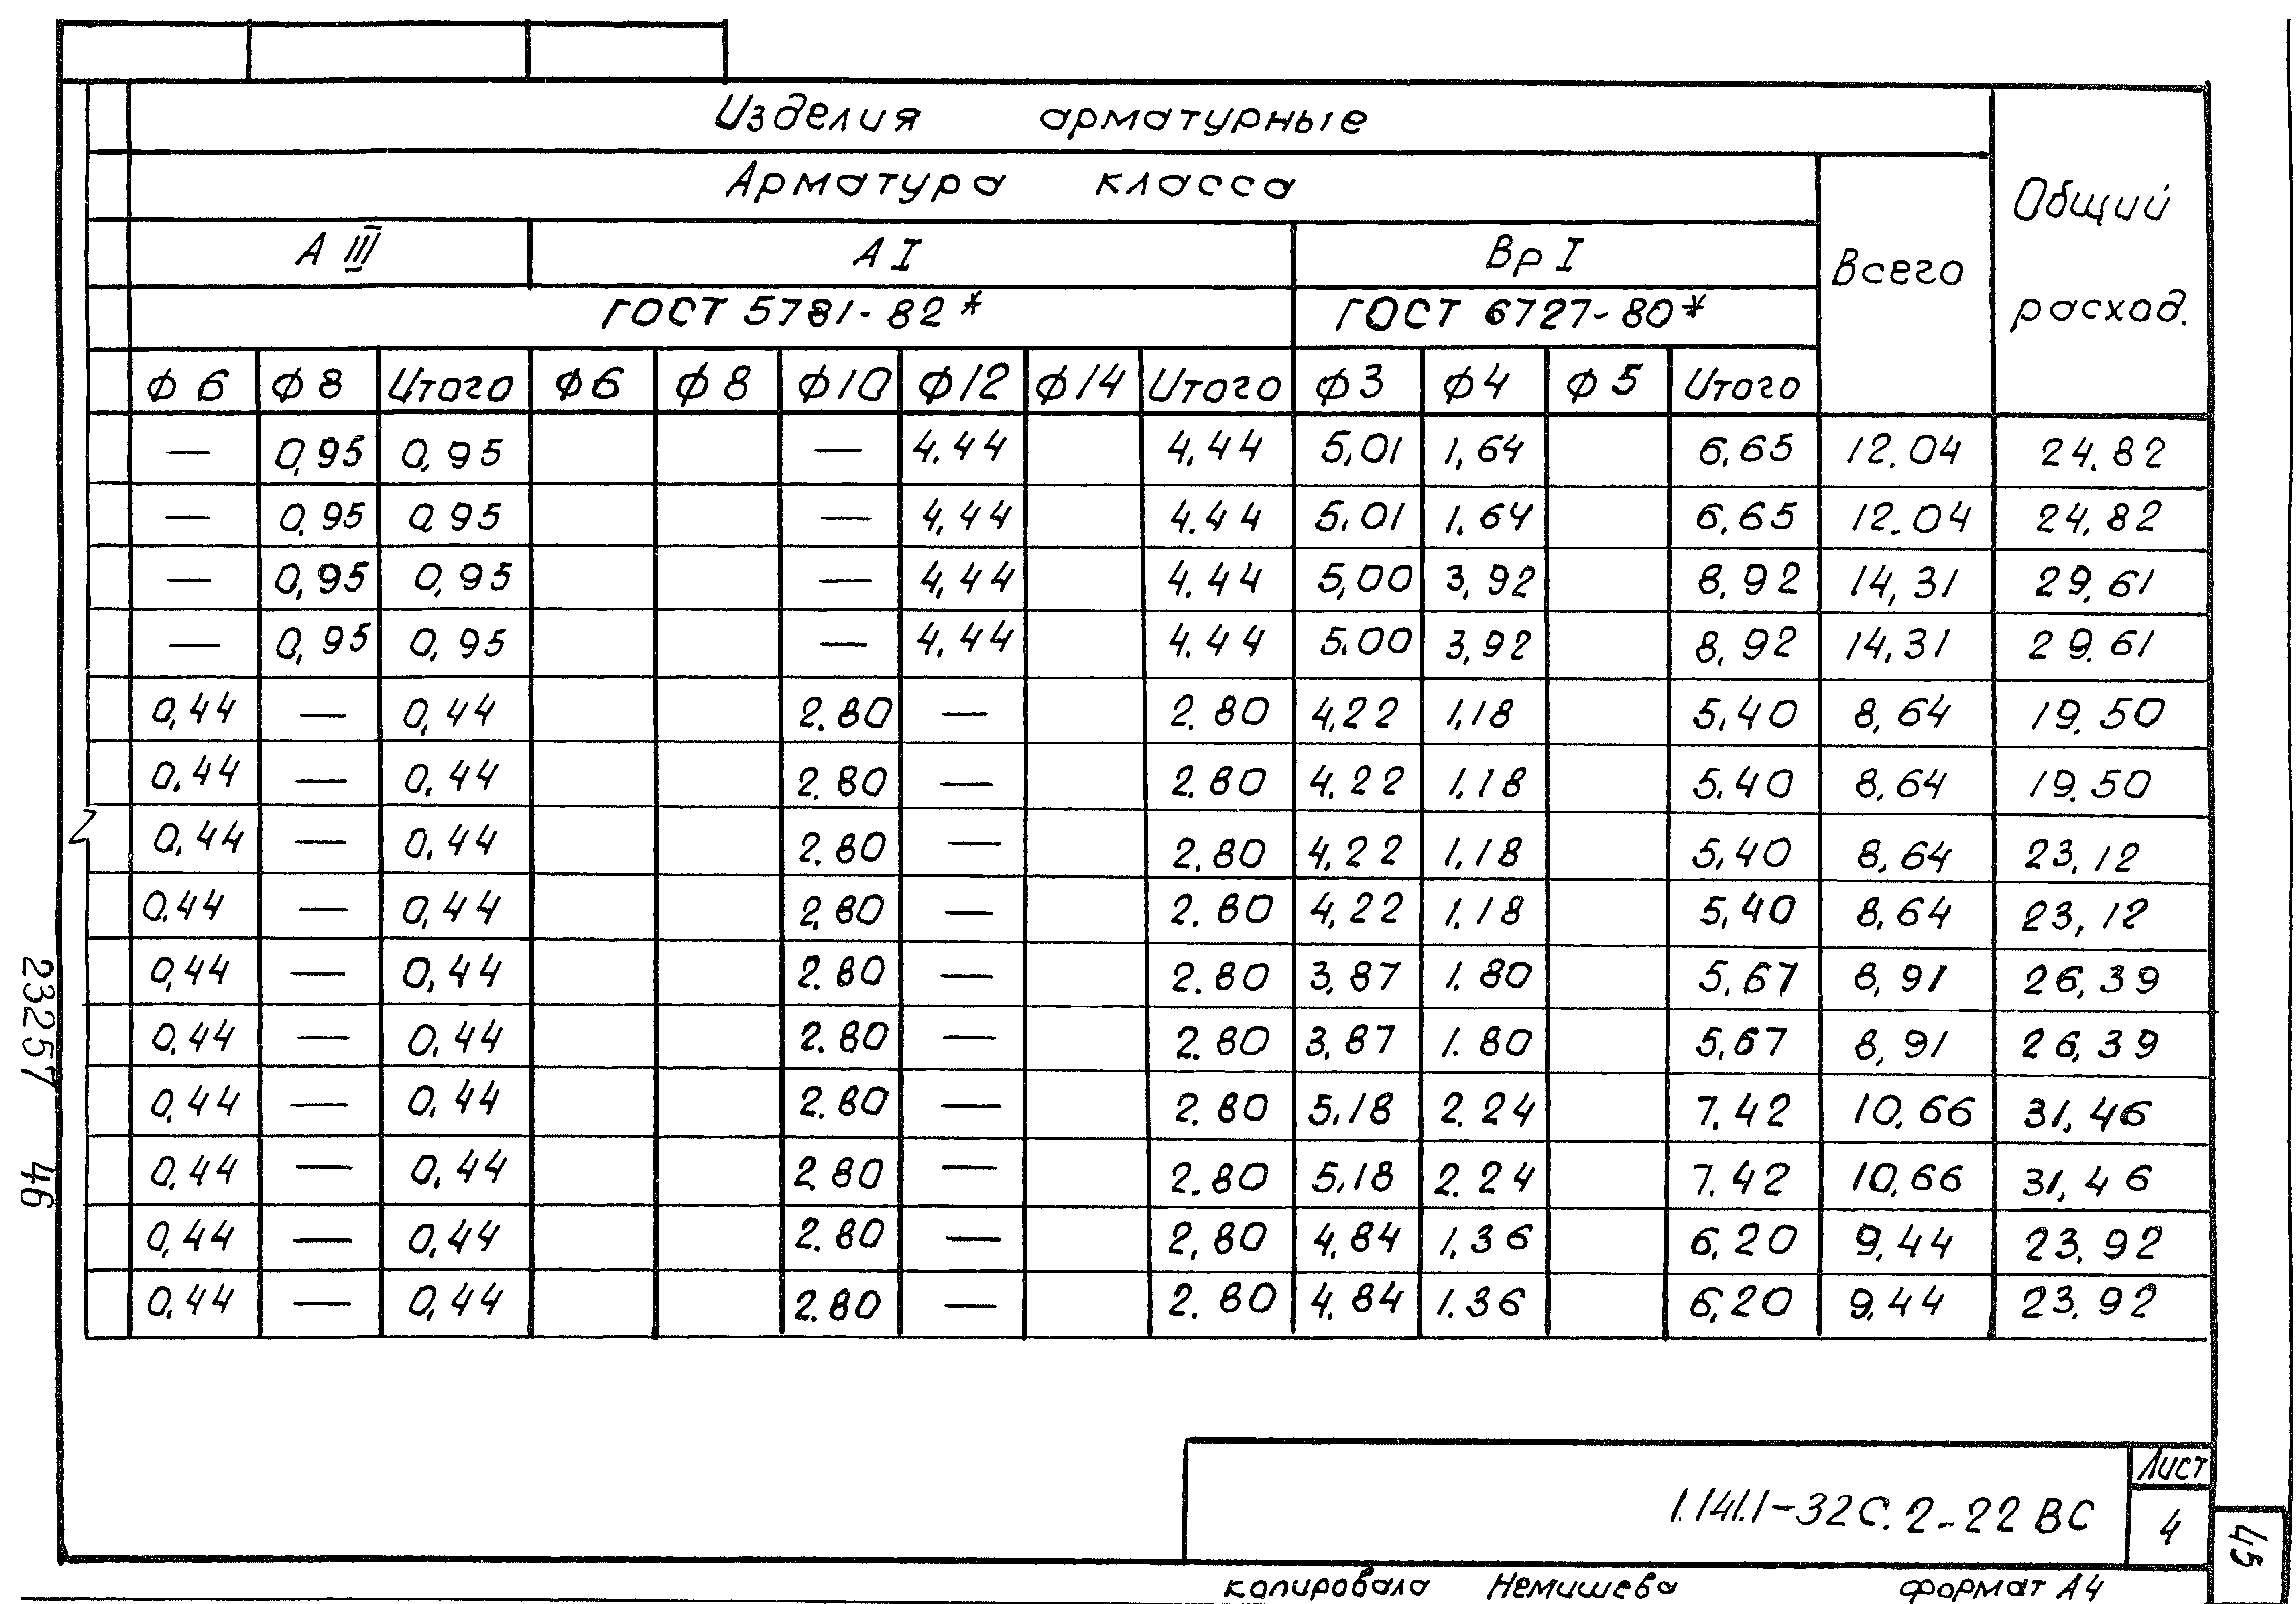 Изделия арматурные
Арматура класса
Всего
Общий расход.
А III
А I
Вр I
ГОСТ 5781-82*
ГОСТ 6727-80*
ф6 ф8 Итого ф6 ф8 ф10 ф12 ф14 Итого ф3 ф4 ф5 Итого
— 0,95 0,95 — 4,44 4,44 5,01 1,64 6,65 12.04 24,82
— 0,95 0,95 — 4,44 4.44 5,01 1,64 6,65 12.04 24,82
— 0,95 0,95 — 4,44 4.44 5,00 3,92 8,92 14,31 29,61
— 0,95 0,95 — 4,44 4.44 5.00 3,92 8,92 14,31 29.61
0,44 — 0,44 2.80 — 2.80 4,22 1,18 5,40 8,64 19.50
0,44 — 0,44 2.80 — 2.80 4,22 1,18 5,40 8,64 19.50
0,44 — 0,44 2.80 — 2.80 4,22 1,18 5,40 8,64 23,12
0.44 — 0,44 2,80 — 2.80 4,22 1,18 5,40 8.64 23,12
0,44 — 0,44 2.80 — 2.80 3,87 1.80 5,67 8,91 26,39
0,44 — 0,44 2.80 — 2.80 3,87 1.80 5,67 8,91 26,39
0,44 — 0,44 2.80 — 2.80 5,18 2.24 7,42 10,66 31,46
0,44 — 0,44 2.80 — 2.80 5,18 2.24 7.42 10,66 31,46
0,44 — 0,44 2.80 — 2,80 4,84 1,36 6,20 9,44 23,92
0,44 — 0,44 2.80 — 2.80 4,84 1.36 6,20 9,44 23,92
23257 46
1.141.1-32С.2-22 ВС
Лист
4
45
копировала Немишева формат А4